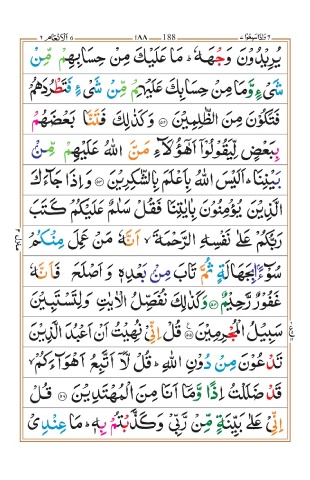 وَاِذَا سَمِعُوْا ٧ 188 ١٨٨ اَلْاَنْعَام ٦
يُرِيْدُوْنَ وَجْهَهٗ ؕ مَا عَلَيْكَ مِنْ حِسَابِهِمْ مِّنْ
شَىْءٍ وَّمَا مِنْ حِسَابِكَ عَلَيْهِمْ مِّنْ شَىْءٍ فَتَطْرُدَهُمْ
فَتَكُوْنَ مِنَ الظّٰلِمِيْنَ ﴿٥٢﴾ وَكَذٰلِكَ فَتَنَّا بَعْضَهُمْ
بِبَعْضٍ لِّيَقُوْلُوْۤا اَهٰٓؤُلَآءِ مَنَّ اللّٰهُ عَلَيْهِمْ مِّنْۢ
بَيْنِنَا ؕ اَلَيْسَ اللّٰهُ بِاَعْلَمَ بِالشّٰكِرِيْنَ ﴿٥٣﴾ وَاِذَا جَآءَكَ
الَّذِيْنَ يُؤْمِنُوْنَ بِاٰيٰتِنَا فَقُلْ سَلٰمٌ عَلَيْكُمْ كَتَبَ
رَبُّكُمْ عَلٰى نَفْسِهِ الرَّحْمَةَ ۙ اَنَّهٗ مَنْ عَمِلَ مِنْكُمْ
سُوْٓءًۢا بِجَهَالَةٍ ثُمَّ تَابَ مِنْۢ بَعْدِهٖ وَاَصْلَحَ ۙ فَاَنَّهٗ
غَفُوْرٌ رَّحِيْمٌ ﴿٥٤﴾ وَكَذٰلِكَ نُفَصِّلُ الْاٰيٰتِ وَلِتَسْتَبِيْنَ
سَبِيْلُ الْمُجْرِمِيْنَ ﴿٥٥﴾ قُلْ اِنِّىْ نُهِيْتُ اَنْ اَعْبُدَ الَّذِيْنَ
تَدْعُوْنَ مِنْ دُوْنِ اللّٰهِ ؕ قُلْ لَّاۤ اَتَّبِعُ اَهْوَآءَكُمْ ۙ
قَدْ ضَلَلْتُ اِذًا وَّمَاۤ اَنَا مِنَ الْمُهْتَدِيْنَ ﴿٥٦﴾ قُلْ
اِنِّىْ عَلٰى بَيِّنَةٍ مِّنْ رَّبِّىْ وَكَذَّبْتُمْ بِهٖ ؕ مَا عِنْدِىْ